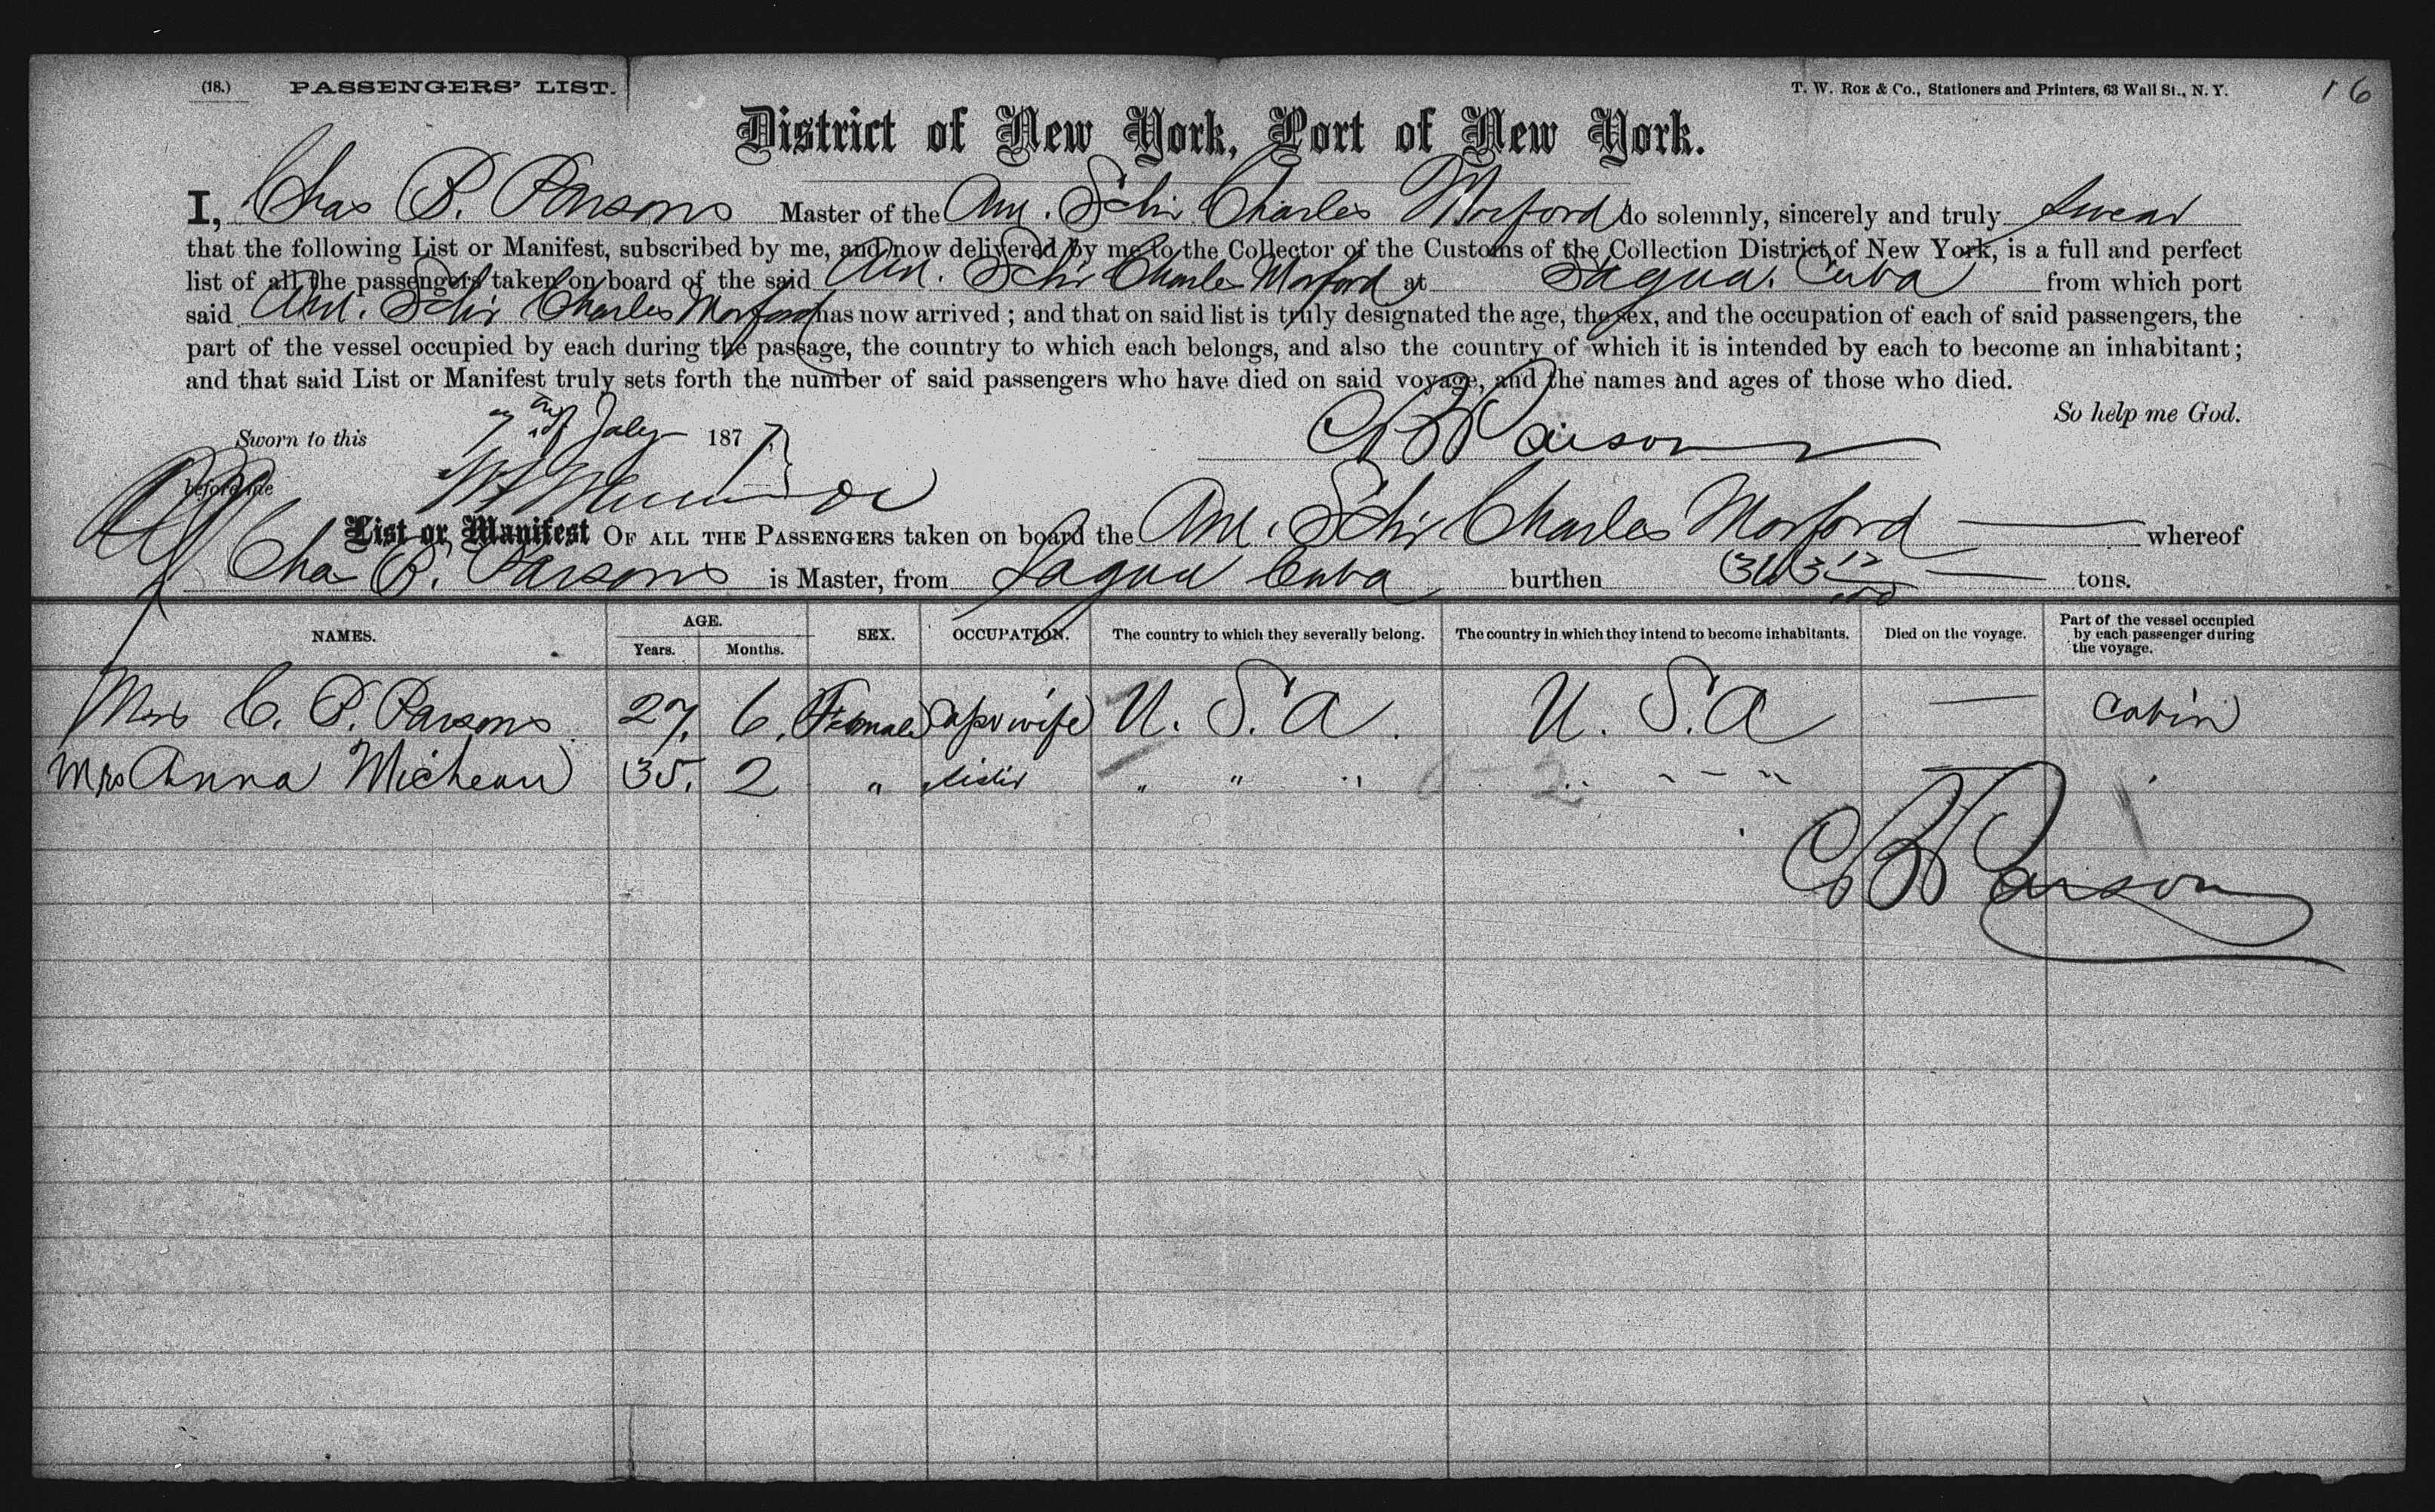 (18.) PASSENGERS' LIST. T. W. ROE & Co., Stationers and Printers, 63 Wall St., N. Y. 16
District of New York, Port of New York.
I, Chas P. Parsons Master of the Am. Schr Charles Morford do solemnly, sincerely and truly swear
that the following List or Manifest, subscribed by me, and now delivered by me to the Collector of the Customs of the Collection District of New York, is a full and perfect
list of all the passengers taken on board of the said Am. Schr Charles Morford at Sagua. Cuba from which port
said Am. Schr Charles Morford has now arrived; and that on said list is truly designated the age, the sex, and the occupation of each of said passengers, the
part of the vessel occupied by each during the passage, the country to which each belongs, and also the country of which it is intended by each to become an inhabitant;
and that said List or Manifest truly sets forth the number of said passengers who have died on said voyage, and the names and ages of those who died.
So help me God.
Sworn to this July 1877 Parsons
before me
List or Manifest OF ALL THE PASSENGERS taken on board the Am. Schr Charles Morford whereof
Chas P. Parsons is Master, from Sagua Cuba burthen tons.
NAMES. AGE. Years. Months. SEX. OCCUPATION. The country to which they severally belong. The country in which they intend to become inhabitants. Died on the voyage. Part of the vessel occupied by each passenger during the voyage.
Mrs C. P. Parsons 27. 6. Female Capt wife U. S. A. U. S. A — Cabin
Mrs Anna Micheau 35. 2 " sister " " " " " " — "
Parsons